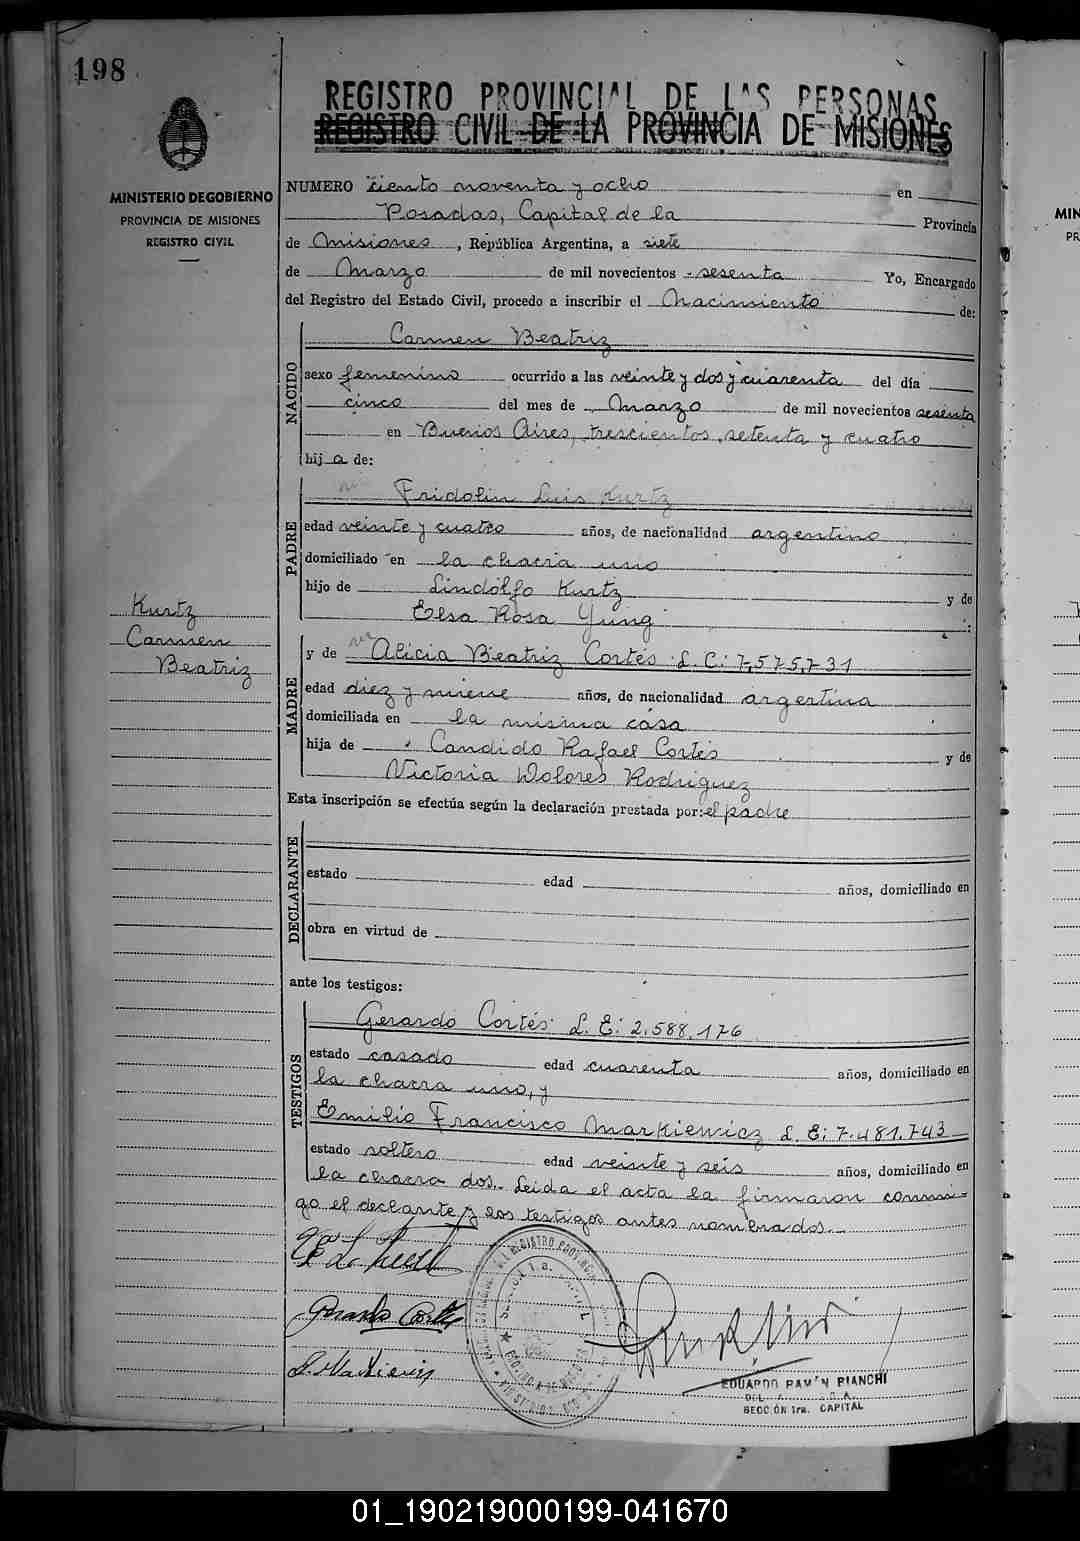 198
REGISTRO PROVINCIAL DE LAS PERSONAS
REGISTRO CIVIL DE LA PROVINCIA DE MISIONES
MINISTERIO DE GOBIERNO
PROVINCIA DE MISIONES
REGISTRO CIVIL
NUMERO ciento noventa y ocho en
Posadas, Capital de la Provincia
de Misiones, República Argentina, a siete
de Marzo de mil novecientos sesenta Yo, Encargado
del Registro del Estado Civil, procedo a inscribir el Nacimiento de:
NACIDO
Carmen Beatriz
sexo femenino ocurrido a las veinte y dos y cuarenta del día
cinco del mes de Marzo de mil novecientos sesenta
en Buenos Aires, trescientos setenta y cuatro
hija de:
PADRE
Fridolin Luis Kurtz
edad veinte y cuatro años, de nacionalidad argentino
domiciliado en la chacra uno
hijo de Lindólfo Kurtz y de
Elsa Rosa Yung :
Kurtz
Carmen
Beatriz
MADRE
y de Alicia Beatriz Cortés L. C: 7,575,731
edad diez y nueve años, de nacionalidad argentina
domiciliada en la misma casa
hija de Candido Rafael Cortés y de
Victoria Dolores Rodriguez
Esta inscripción se efectúa según la declaración prestada por: el padre
DECLARANTE
estado edad años, domiciliado en
obra en virtud de
ante los testigos:
TESTIGOS
Gerardo Cortés L. E: 2.588.176
estado casado edad cuarenta años, domiciliado en
la chacra uno, y
Emilio Francisco Markiewicz L. E: 7.481.743
estado soltero edad veinte y seis años, domiciliado en
la chacra dos. Leida el acta la firmaron conmi-
go el declante y los testigos antes nombrados.
Gerardo Cortés
EDUARDO RAMÓN BIANCHI
SECCIÓN 1ra. CAPITAL
MIN
PR
01_190219000199-041670